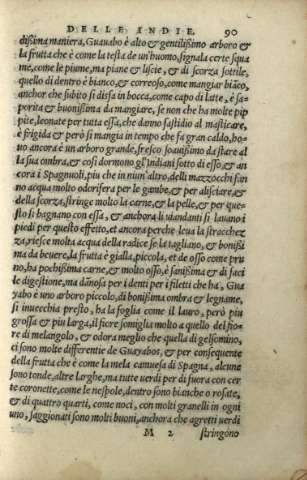 DELLE INDIE. 90
dißima maniera, Guauabo è alto & gentilißimo arboro &
la frutta che è come la testa de un'huomo, signala certe squa
me, come le piume, ma piane & liscie, & di scorza sottile,
quello di dentro è bianco, & correoso, come mangiar biãco,
anchor che subito si disfa in bocca, come capo di latte, è sa-
porita & buonißima da mangiare, se non che ha molte pip
pite, leonate per tutta essa, che danno fastidio al masticare,
è frigida & però si mangia in tempo che fa gran caldo, ho-
uo ancora è un arboro grande, fresco soauißimo da stare al
la sua ombra, & così dormono gl'Indiani sotto di esso, & an
cora i Spagnuoli, piu che in nun'altro, delli mazzocchi fan
no acqua molto odorifera per le gambe, & per alisciare, &
della scorza, stringe molto la carne, & la pelle, & per que-
sto li bagnano con essa, & anchora li uiandanti si lauano i
piedi per questo effetto, et ancora perche leua la stracchez
za, riesce molta acqua della radice se la tagliano, & bonißi
ma da beuere, la frutta è gialla, piccola, et de osso come pru
no, ha pochißima carne, & molto osso, è sanißima & di faci
le digestione, ma dãnosa per i denti per i filetti che ha, Gua
yabo è uno arboro piccolo, di bonißima ombra & legname,
si inuecchia presto, ha la foglia come il lauro, però piu
grossa & piu larga, il fiore somiglia molto a quello del fio-
re di melangolo, & odora meglio che quella di gelsomino,
ci sono molte differentie de Guayabos, & per consequente
della frutta che è come la mela camuesa di Spagna, alcune
sono tonde, altre larghe, ma tutte uerdi per di fuora con cer
te coronette, come le nespole, dentro sono bianche o rosate,
& di quattro quarti, come noci, con molti granelli in ogni
uno, saggionati sono molti buoni, anchora che agretti uerdi
M 2 stringono